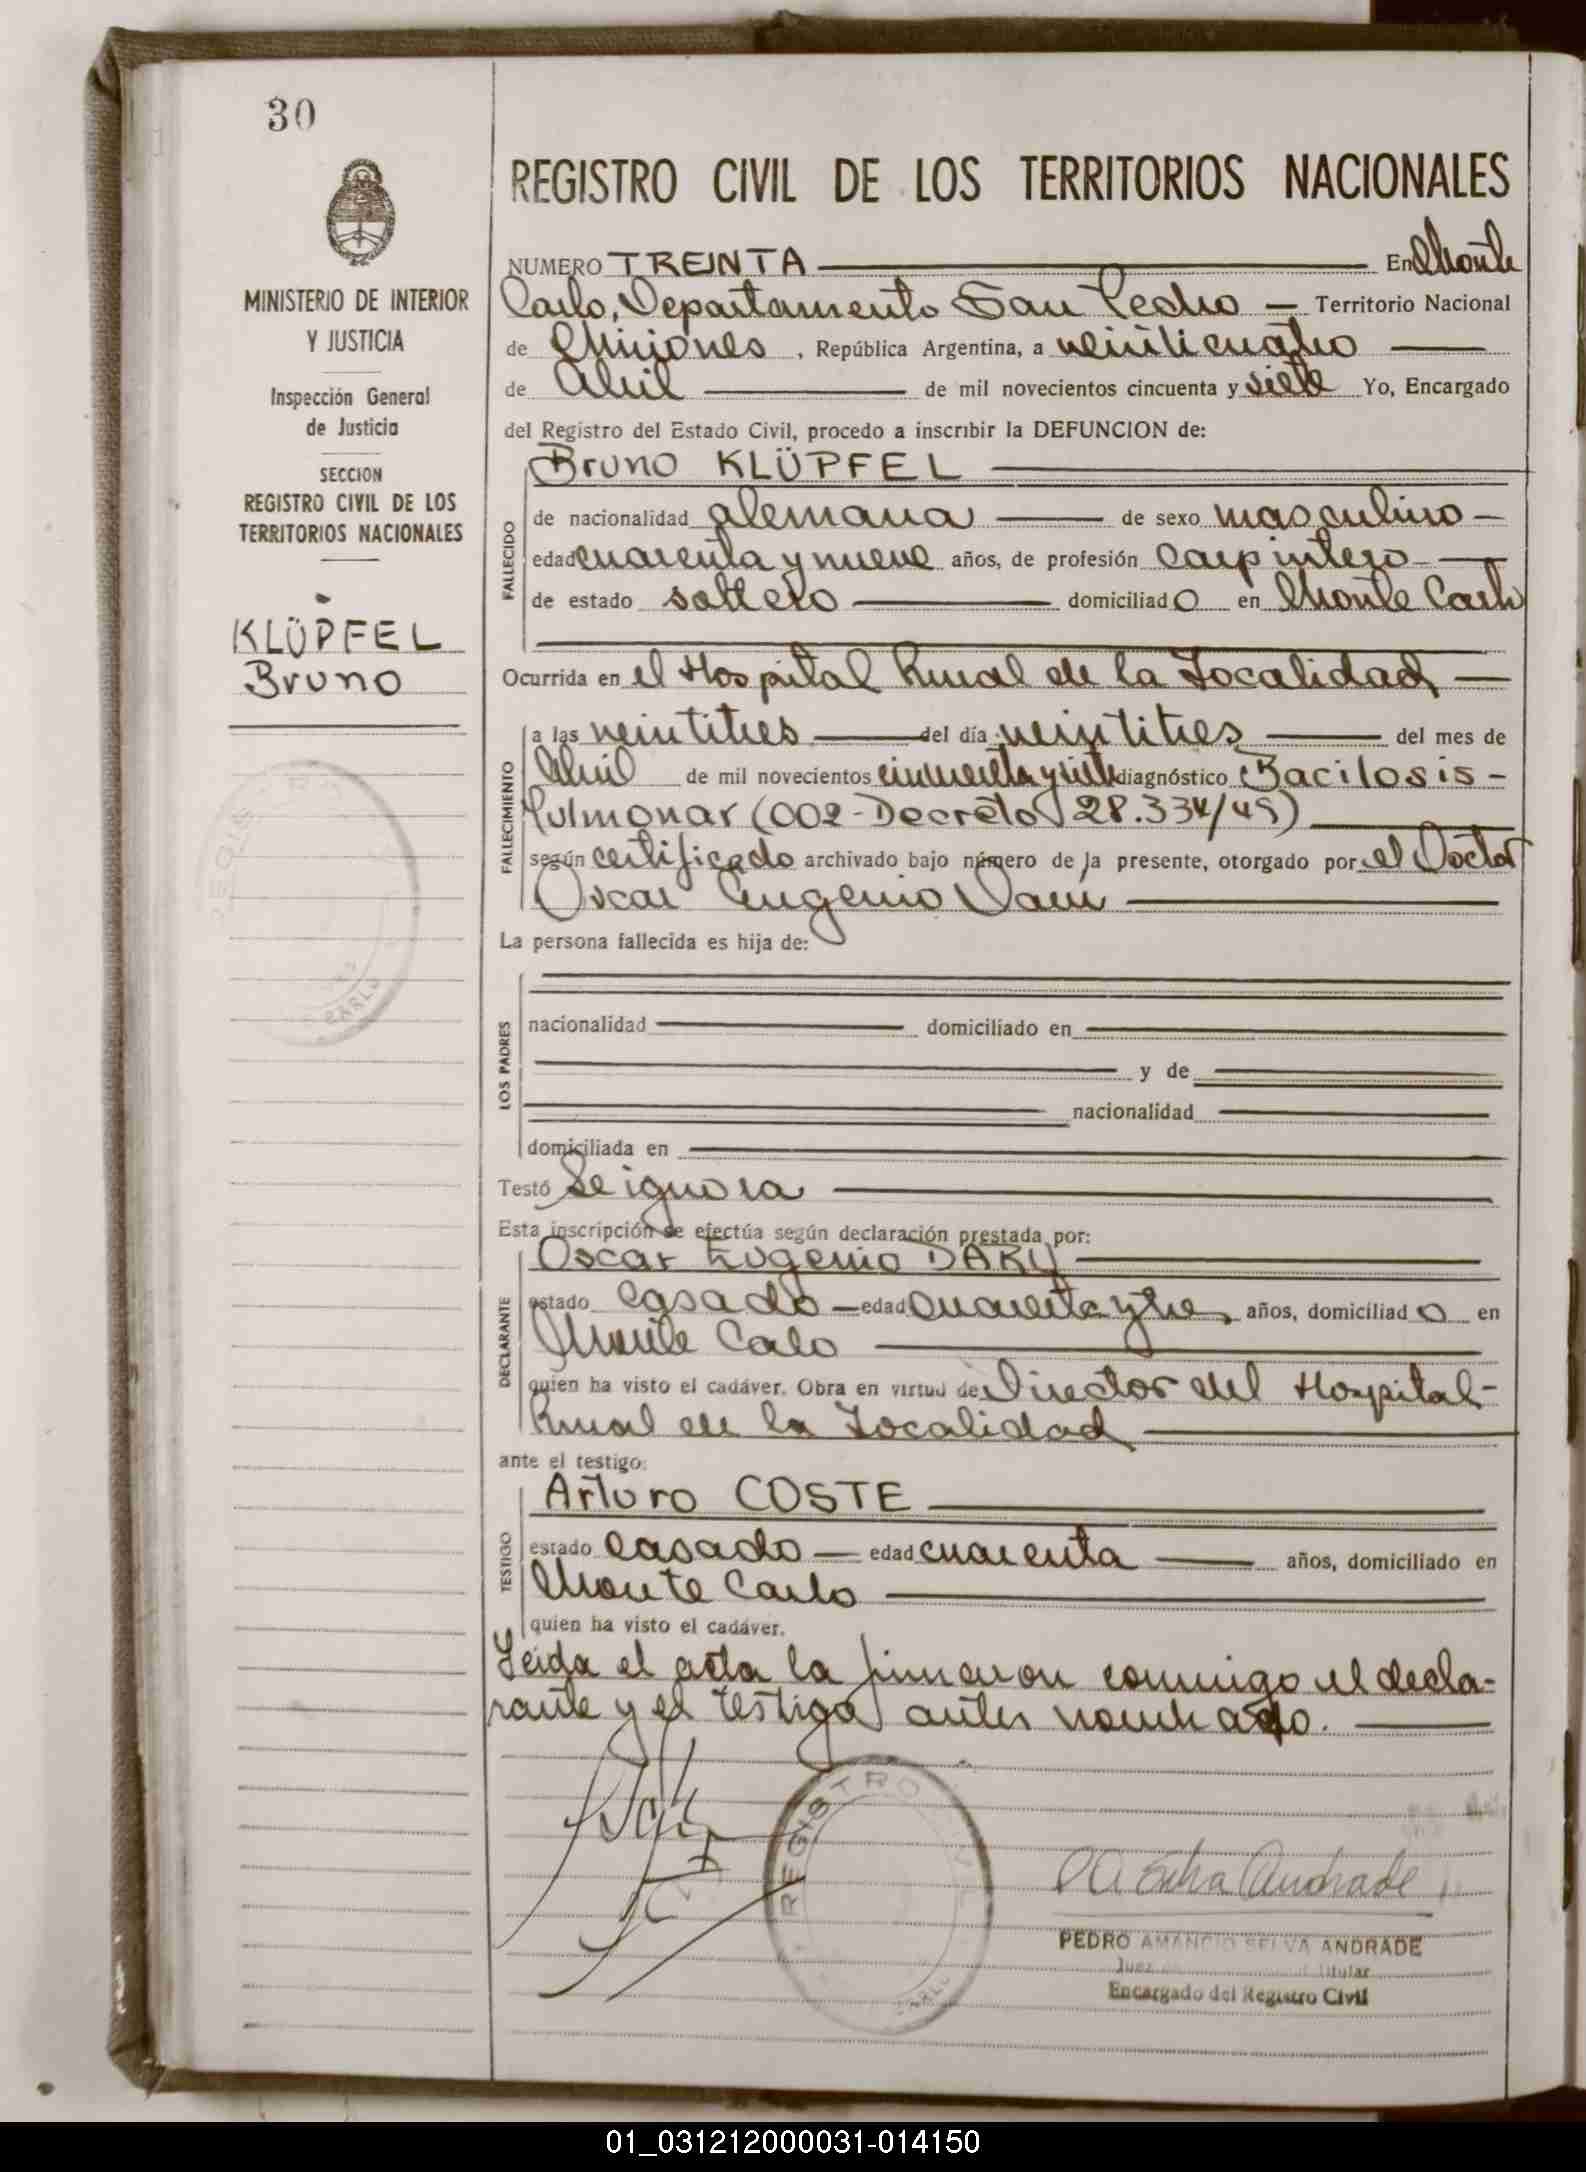 30
MINISTERIO DE INTERIOR
Y JUSTICIA
Inspección General
de Justicia
SECCION
REGISTRO CIVIL DE LOS
TERRITORIOS NACIONALES
KLÜPFEL
Bruno
REGISTRO CIVIL DE LOS TERRITORIOS NACIONALES
NUMERO TREINTA En Monte
Carlo, Departamento San Pedro Territorio Nacional
de Misiones, República Argentina, a veinticuatro
de Abril de mil novecientos cincuenta y siete Yo, Encargado
del Registro del Estado Civil, procedo a inscribir la DEFUNCION de:
Bruno KLÜPFEL
FALLECIDO
de nacionalidad alemana de sexo masculino
edad cuarenta y nueve años, de profesión carpintero
de estado soltero domiciliado en Monte Carlo
Ocurrida en el Hospital Rural de la Localidad
FALLECIMIENTO
a las veintitres del día veintitres del mes de
Abril de mil novecientos cincuenta y siete diagnóstico Bacilosis-
Pulmonar (002-Decreto 28.334/45)
según certificado archivado bajo número de la presente, otorgado por el Doctor
Oscar Eugenio Daru
La persona fallecida es hija de:
LOS PADRES
nacionalidad domiciliado en
y de
nacionalidad
domiciliada en
Testó Se ignora
Esta inscripción se efectúa según declaración prestada por:
Oscar Eugenio DARU
DECLARANTE
estado casado edad cuarenta y tres años, domiciliado en
Monte Calo
quien ha visto el cadáver. Obra en virtud de Director del Hospital-
Rural de la Localidad
ante el testigo:
Arturo COSTE
TESTIGO
estado casado edad cuarenta años, domiciliado en
Monte Carlo
quien ha visto el cadáver.
Leida el acta la firmaron conmigo el decla-
rante y el testigo antes nombrado.
REGISTRO
CARLO
PEDRO AMANCIO SELVA ANDRADE
Juez Titular
Encargado del Registro Civil
01_031212000031-014150